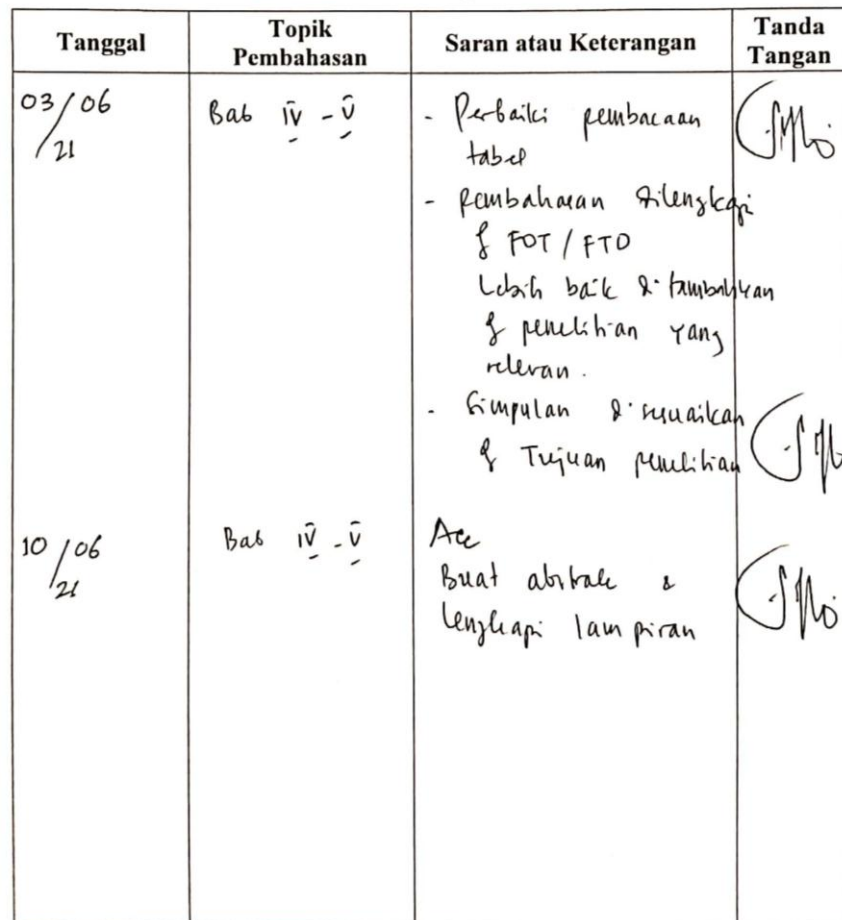 Tanggal
Topik
Pembahasan
Saran atau Keterangan
Tanda
Tangan
03/06
/21
Bab IV - V
- Perbaiki pembacaan
tabel
- Pembahasan dilengkapi
FOT / FTO
Lebih baik ditambahkan
penelitian yang
relevan.
- Simpulan disesuaikan
Tujuan penelitian
10/06
/21
Bab IV - V
Acc
Buat abstrak &
lengkapi lampiran